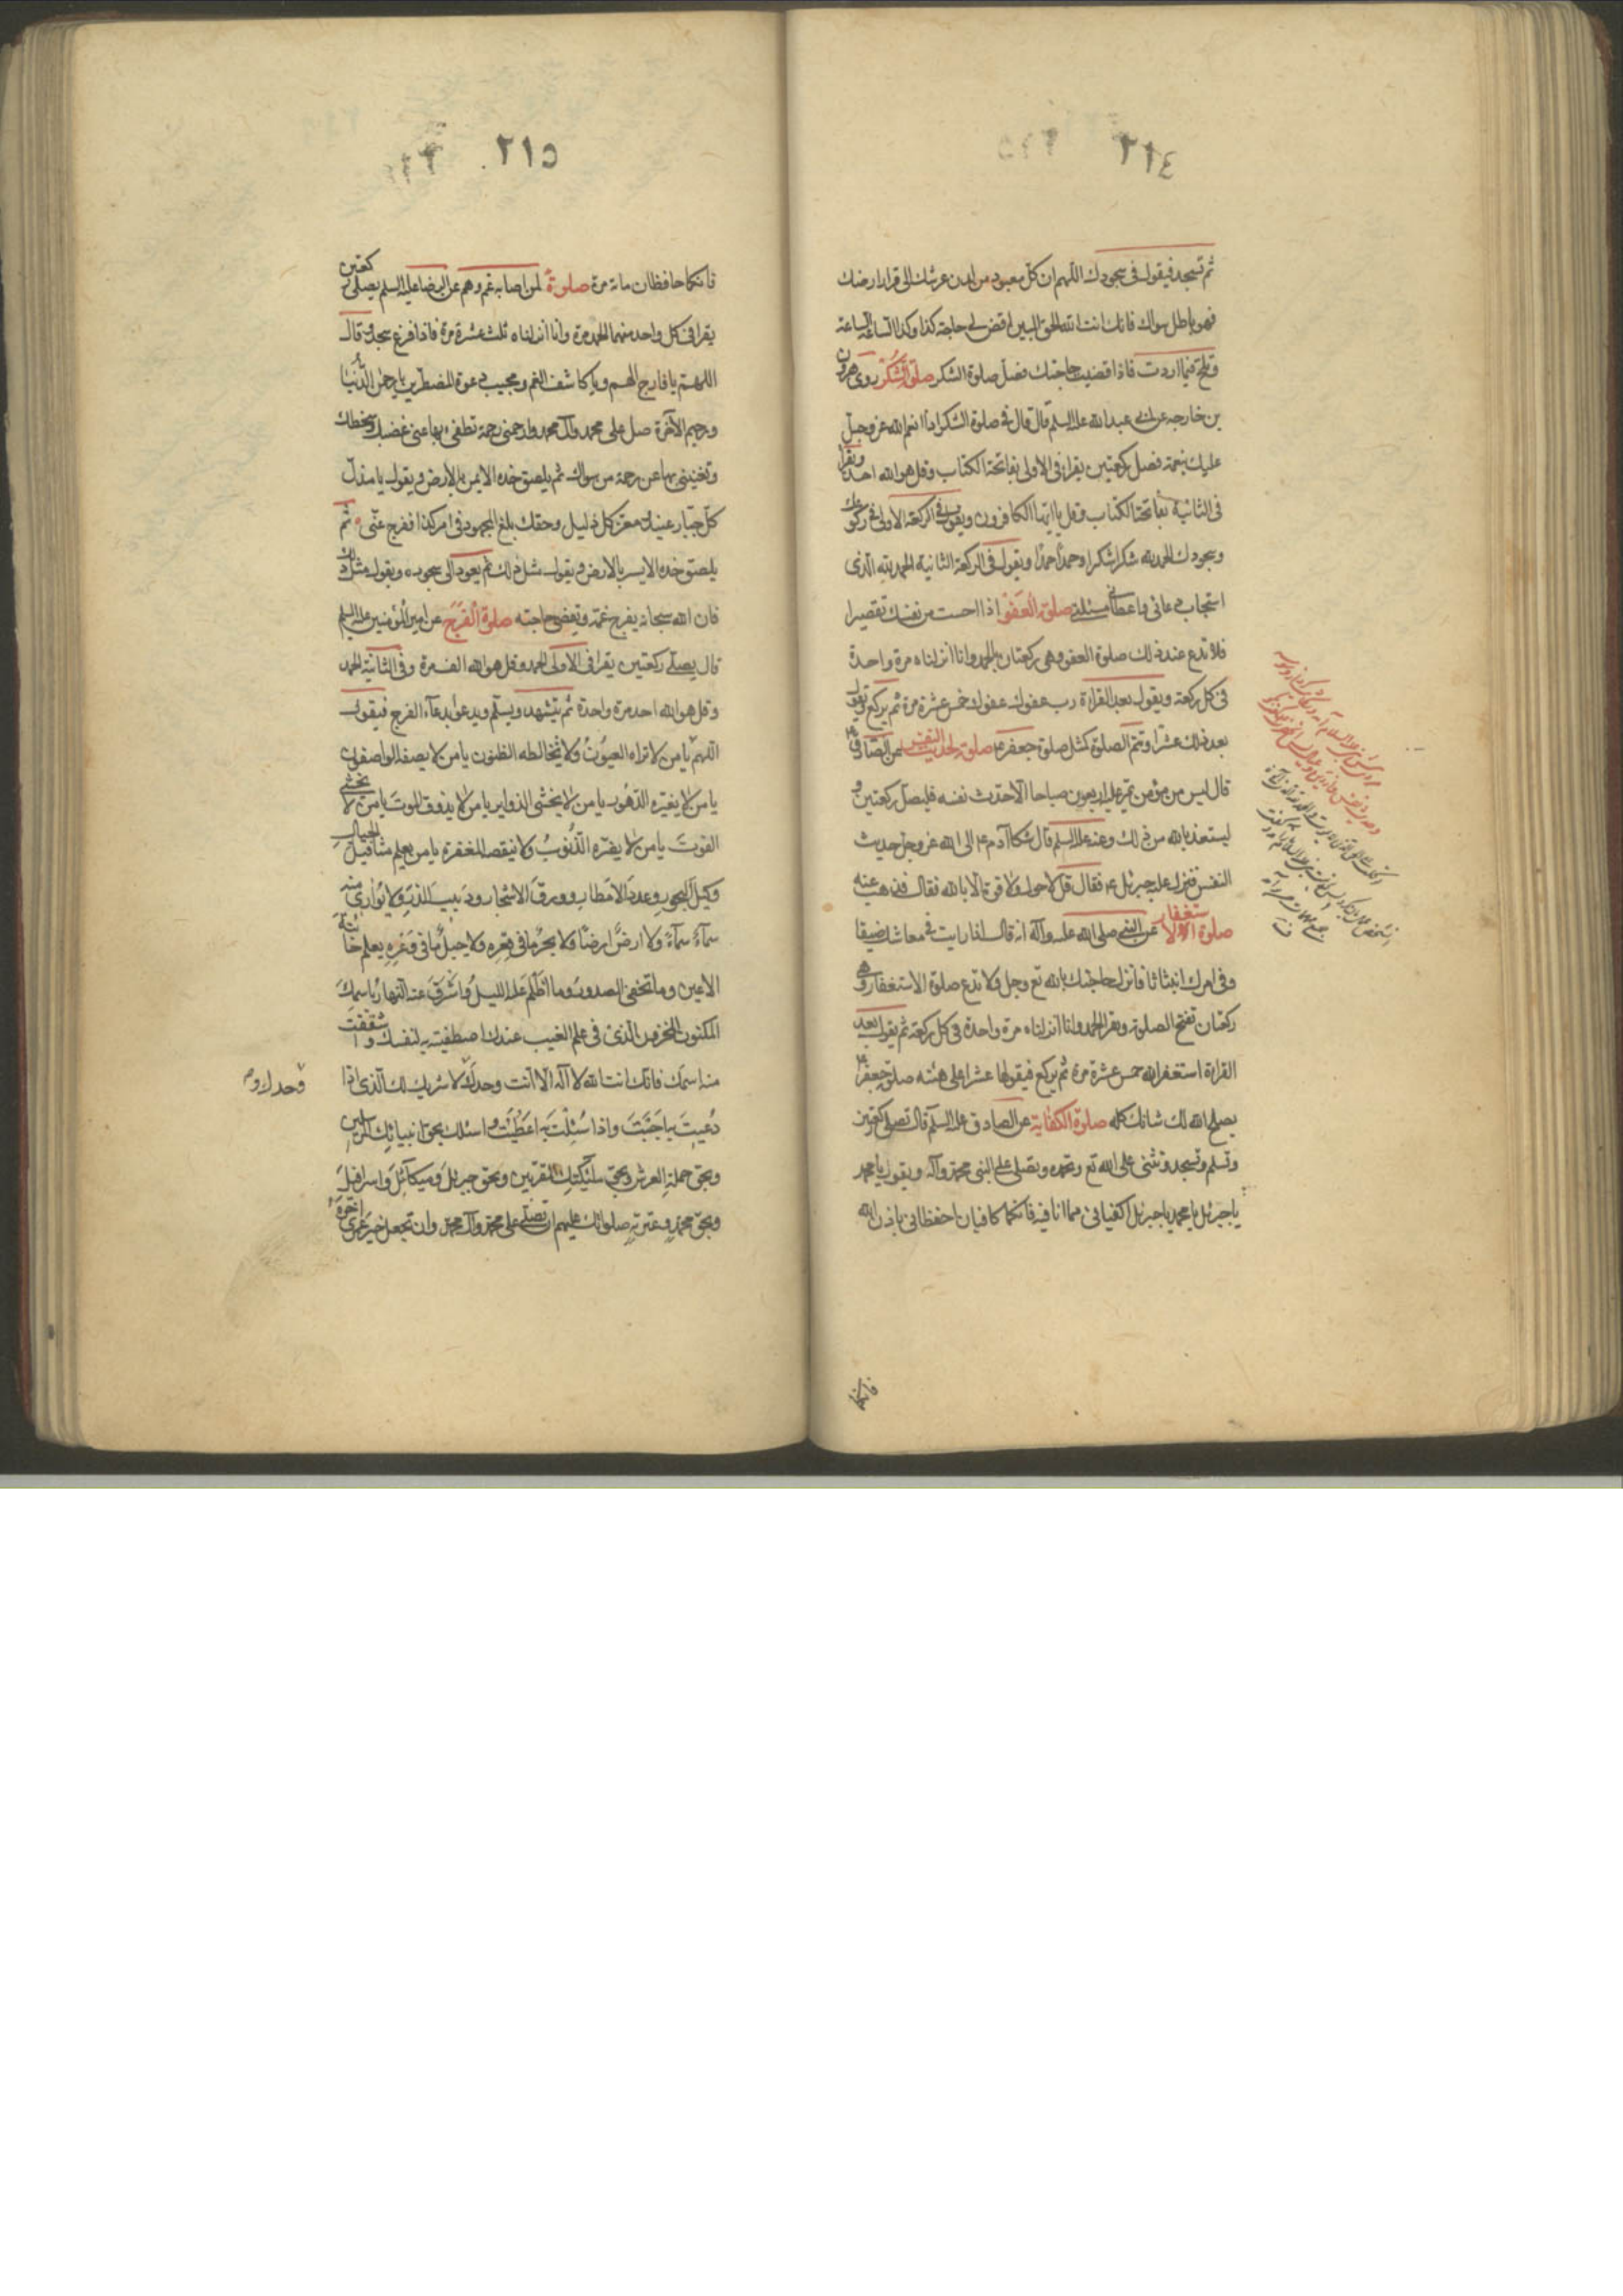 ٢١٤
ثم تسجد فيقول فى سجودك اللهم ان كل معبود من لدن عرشك الى قرار ارضك
فهو باطل سواك فانك انت الله الحق المبين اقض لى حاجة كذا وكذا الساعة الساعة
وتلح فيما اردت فاذا قضيت حاجتك فصل صلوة الشكر صلوة الشكر روى هرون
بن خارجه عن ابى عبد الله عليه السلم قال قال فى صلوة الشكر اذا انعم الله عز وجل
عليك بنعمة فصل ركعتين يقراء فى الاولى بفاتحة الكتاب وقل هو الله احد ويقرأ
فى الثانية بفاتحة الكتاب وقل يا ايها الكافرون ويقول فى الركعة الاولى فى ركوعك
وسجودك الحمد لله شكرا شكرا وحمدا حمدا ويقول فى الركعة الثانية الحمد لله الذى
استجاب دعائى واعطانى مسئلتى صلوة العفو اذا احست من نفسك تقصيرا
فلا تدع عند ذلك صلوة العفو وهى ركعتان بالحمد وانا انزلناه مرة واحدة
فى كل ركعة ويقول بعد القراءة رب عفوك عفوك خمس عشرة مرة ثم يركع ويقول
بعد ذلك عشرا وتتم الصلوة كمثل صلوة جعفر ع صلوة لحديث النفس عن الصادق ع
قال ليس من مؤمن تمر عليه اربعون صباحا الا حدث نفسه فليصل ركعتين و
ليستعذ بالله من ذلك وعنه عليه السلم قال شكا آدم ع الى الله عز وجل حديث
النفس فنزل عليه جبرئيل ع فقال قل لا حول ولا قوة الا بالله فقال فذهب عنه
صلوة الاستغفار عن النبى صلى الله عليه وآله انه قال اذا رايت فى معاشك ضيقا
وفى امرك انبثاثا فانزل حاجتك بالله تع وجل ولا تدع صلوة الاستغفار وهى
ركعتان تفتح الصلوة ويقرا الحمد وانا انزلناه مرة واحدة فى كل ركعة ثم يقول بعد
القراءة استغفر الله خمس عشرة مرة ثم يركع فيقولها عشرا على هيئة صلوة جعفر ع
يصلح الله لك شانك كله صلوة الكفاية عن الصادق عليه السلم قال تصلى ركعتين
وتسلم وتسجد وتثنى على الله تع وتحمده وتصلى على النبى محمد وآله ويقول يا محمد
يا جبرئيل يا محمد يا جبرئيل اكفيانى مما انا فيه فانكما كافيان احفظانى باذن الله
فانكما
٢١٥
فانكما حافظان مائة مرة صلوة لمن اصابه غم وهم عن الرضا عليه السلم يصلى ركعتين
يقرا فى كل واحد منهما الحمد مرة وانا انزلناه ثلث عشرة مرة فاذا فرغ سجد وقال
اللهم يا فارج الهم ويا كاشف الغم ومجيب دعوة المضطرين يا رحمن الدنيا
ورحيم الآخرة صل على محمد وآل محمد وارحمنى رحمة تطفىء بها عنى غضبك وسخطك
وتغنينى بها عن رحمة من سواك ثم يلصق خده الايمن بالارض ويقول يا مذل
كل جبار عنيد ومعز كل ذليل وحقك بلغ المجهود فى امر كذا ففرج عنى ثم
يلصق خده الايسر بالارض ويقول مثل ذلك ثم يعود الى سجوده ويقول مثل ذلك
فان الله سبحانه يفرج غمه ويقضى حاجته صلوة الفرج عن امير المؤمنين عليه السلم
قال يصلى ركعتين يقرا فى الاولى الحمد وقل هو الله الف مرة وفى الثانية الحمد
وقل هو الله احد مرة واحدة ثم يتشهد ويسلم ويدعو بدعآء الفرج فيقول
اللهم يا من لا تراه العيون ولا تخالطه الظنون يا من لا يصفه الواصفون
يا من لا يغيره الدهور يا من لا يخشى الدواير يا من لا يذوق الموت يا من لا يخشى
الفوت يا من لا يضره الذنوب ولا ينقصه المغفرة يا من يعلم مثاقيل الجبال
وكيل البحور وعدد الامطار وورق الاشجار ودبيب الذر ولا يوارى منه
سمآء سمآء ولا ارض ارضا ولا بحر ما فى قعره ولا جبل ما فى وعره يعلم خائنة
الاعين وما تخفى الصدور وما اظلم عليه الليل واشرق عنه النهار باسمك
المكنون المخزون الذى فى علم الغيب عندك اصطفيته لنفسك واشققت
منه اسمك فانك انت الله لا اله الا انت وحدك لا شريك لك الذى اذا
وحدك وم
دعيت به اجبت واذا سئلت به اعطيت واسئلك بحق انبيائك المرسلين
وبحق حملة العرش وبحق ملئكتك المقربين وبحق جبرئيل وميكآئيل واسرافيل
وبحق محمد وعترته صلواتك عليهم ان تصلى على محمد وآل محمد وان تجعل خير عمرى آخره